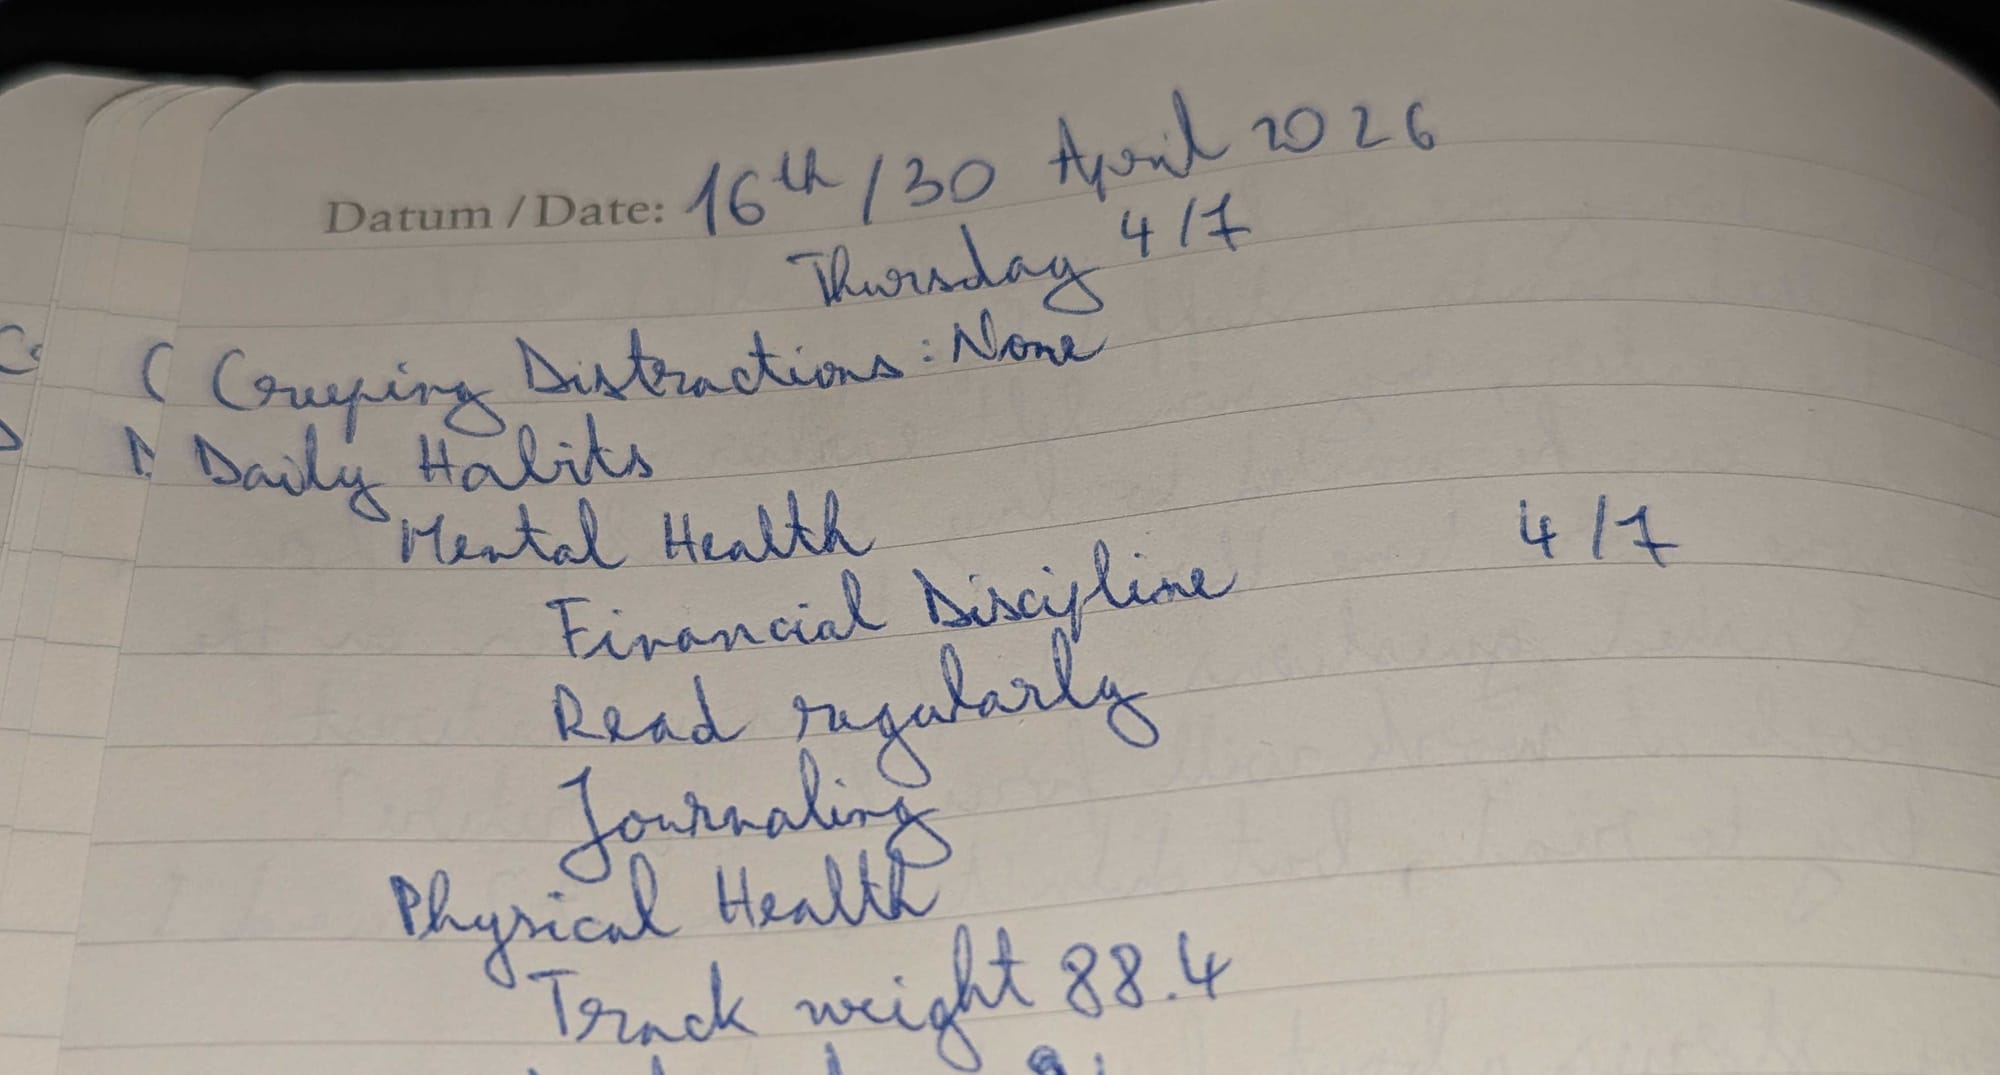 Datum / Date: 16th / 30 April 2026
Thursday 4/7
Creeping Distractions : None
Daily Habits
Mental Health 4/7
Financial Discipline
Read regularly
Journaling
Physical Health
Track weight 88.4